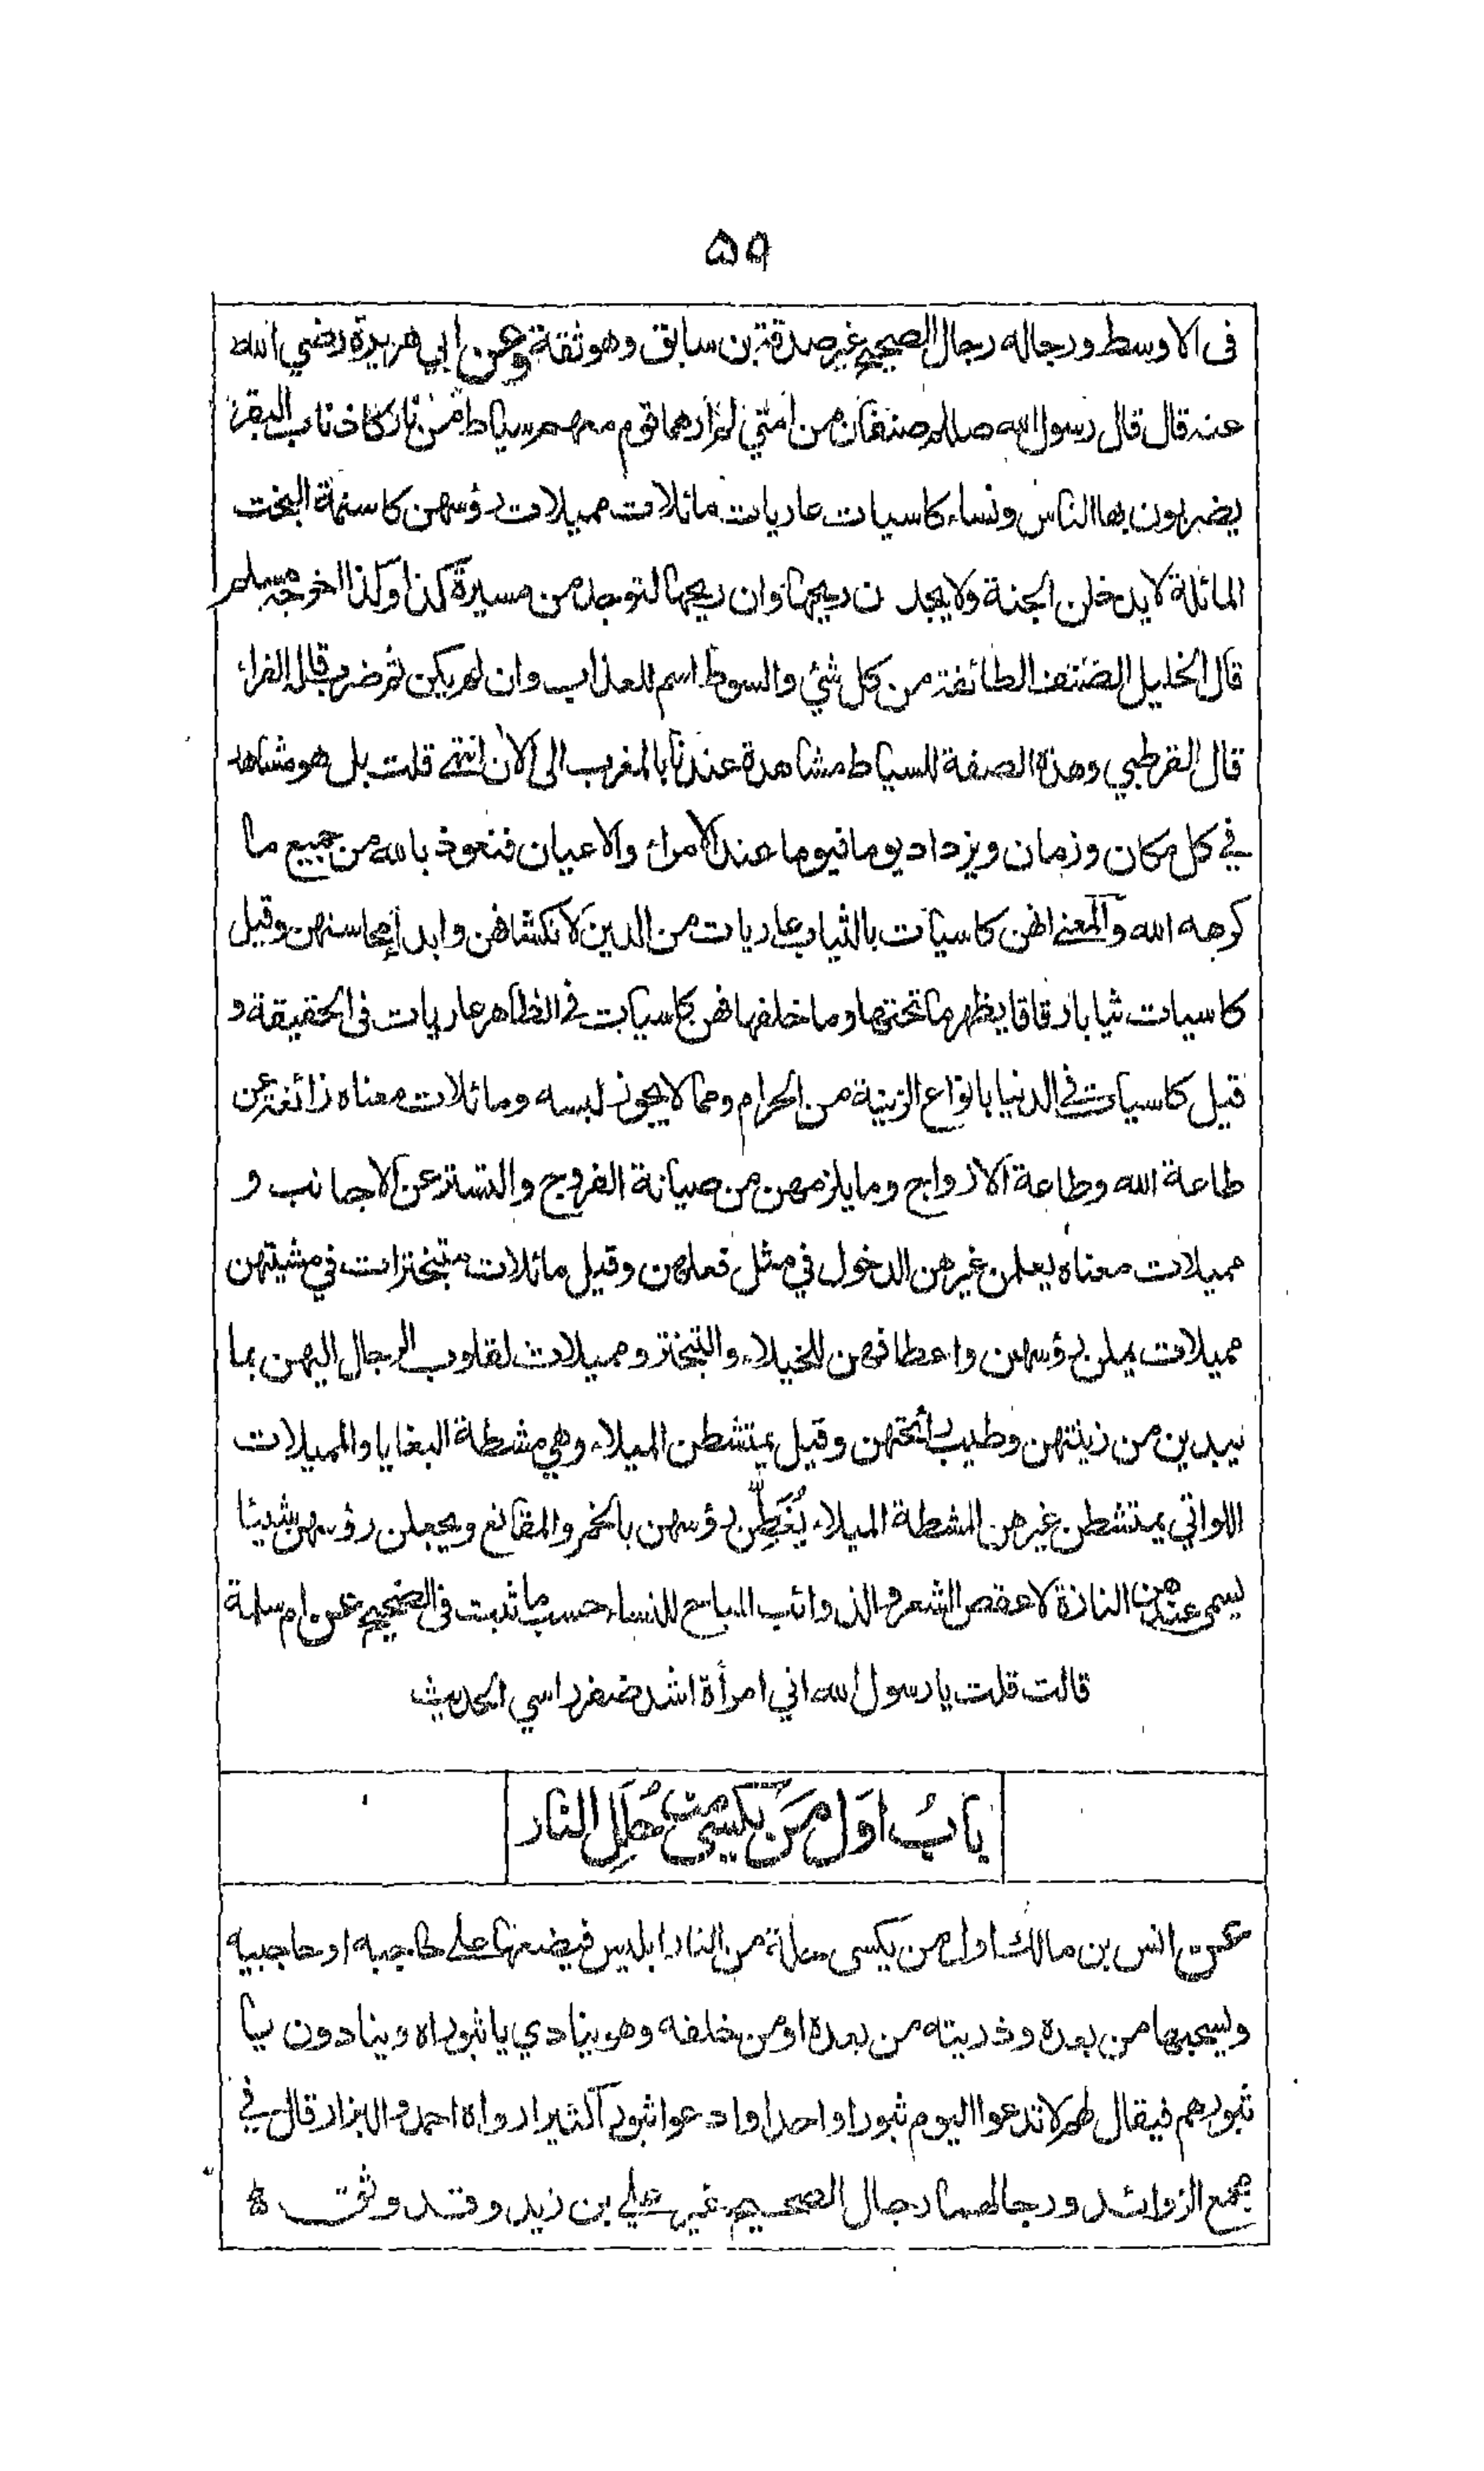 ۵۹
فى الاوسط ورجاله رجال الصحيح غير صدقة بن سابق وهو ثقة وعن ابي هريرة رضي الله
عنه قال قال رسول الله صللم صنفان من امتي لم ارهما قوم معهم سياط من نار كاذناب البقر
يضربون بها الناس ونساء كاسيات عاريات مائلات مميلات رؤسهن كاسنمة البخت
المائلة لا يدخلن الجنة ولا يجدن ريحها وان ريحها لتوجد من مسيرة كذا وكذا اخرجه مسلم
قال الخليل الصنف الطائفة من كل شئ والسوط اسم للعذاب وان لم يكن ثم ضرب قاله الفراء
قال القرطبي وهذه الصفة للسياط مشاهدة عندنا بالمغرب الى الآن انتهى قلت بل هو مشاهد
في كل مكان وزمان ويزداد يوما فيوما عند الامراء والاعيان فنعوذ بالله من جميع ما
كرهه الله والمعنى انهن كاسيات بالثياب عاريات من الدين لانكشافهن وابداء محاسنهن وقيل
كاسيات ثيابا رقاقا يظهر ما تحتها وما خلفها فهن كاسيات في الظاهر عاريات فى الحقيقة و
قيل كاسيات في الدنيا بانواع الزينة من الحرام ومما لا يجوز لبسه ومائلات معناه زائغة عن
طاعة الله وطاعة الازواج وما يلزمهن من صيانة الفروج والتستر عن الاجانب و
مميلات معناه يعلمن غيرهن الدخول في مثل فعلهن وقيل مائلات متبخترات في مشيتهن
مميلات يملن رؤسهن واعطافهن للخيلاء والتبختر ومميلات لقلوب الرجال اليهن بما
يبدين من زينتهن وطيب رائحتهن وقيل يمتشطن الميلاء وهي مشطة البغايا والمميلات
اللواتي يمتشطن غيرهن المشطة الميلاء يُغَطِّن رؤسهن بالخمر والمقانع ويجعلن رؤسهن شيئا
يسمى عندهن النازة لا عقص الشعر والذوائب المباح للنساء حسب ما ثبت فى الصحيح عن ام سلمة
قالت قلت يا رسول الله اني امرأة اشد ضفر راسي الحديث
بابُ اوّل مَن يُكسى من حُلَلِ النار
عن انس بن مالك اول من يكسى حلة من النار ابليس فيضعها على حاجبه او حاجبيه
ويسحبها من بعده وذريته من بعده او من خلفه وهو ينادي يا ثبوراه وينادون يا
ثبورهم فيقال لهم لا تدعوا اليوم ثبورا واحدا وادعوا ثبورا كثيرا رواه احمد والبزار قال في
مجمع الزوائد ورجالهما رجال الصحيح غير علي بن زيد وقد وثق